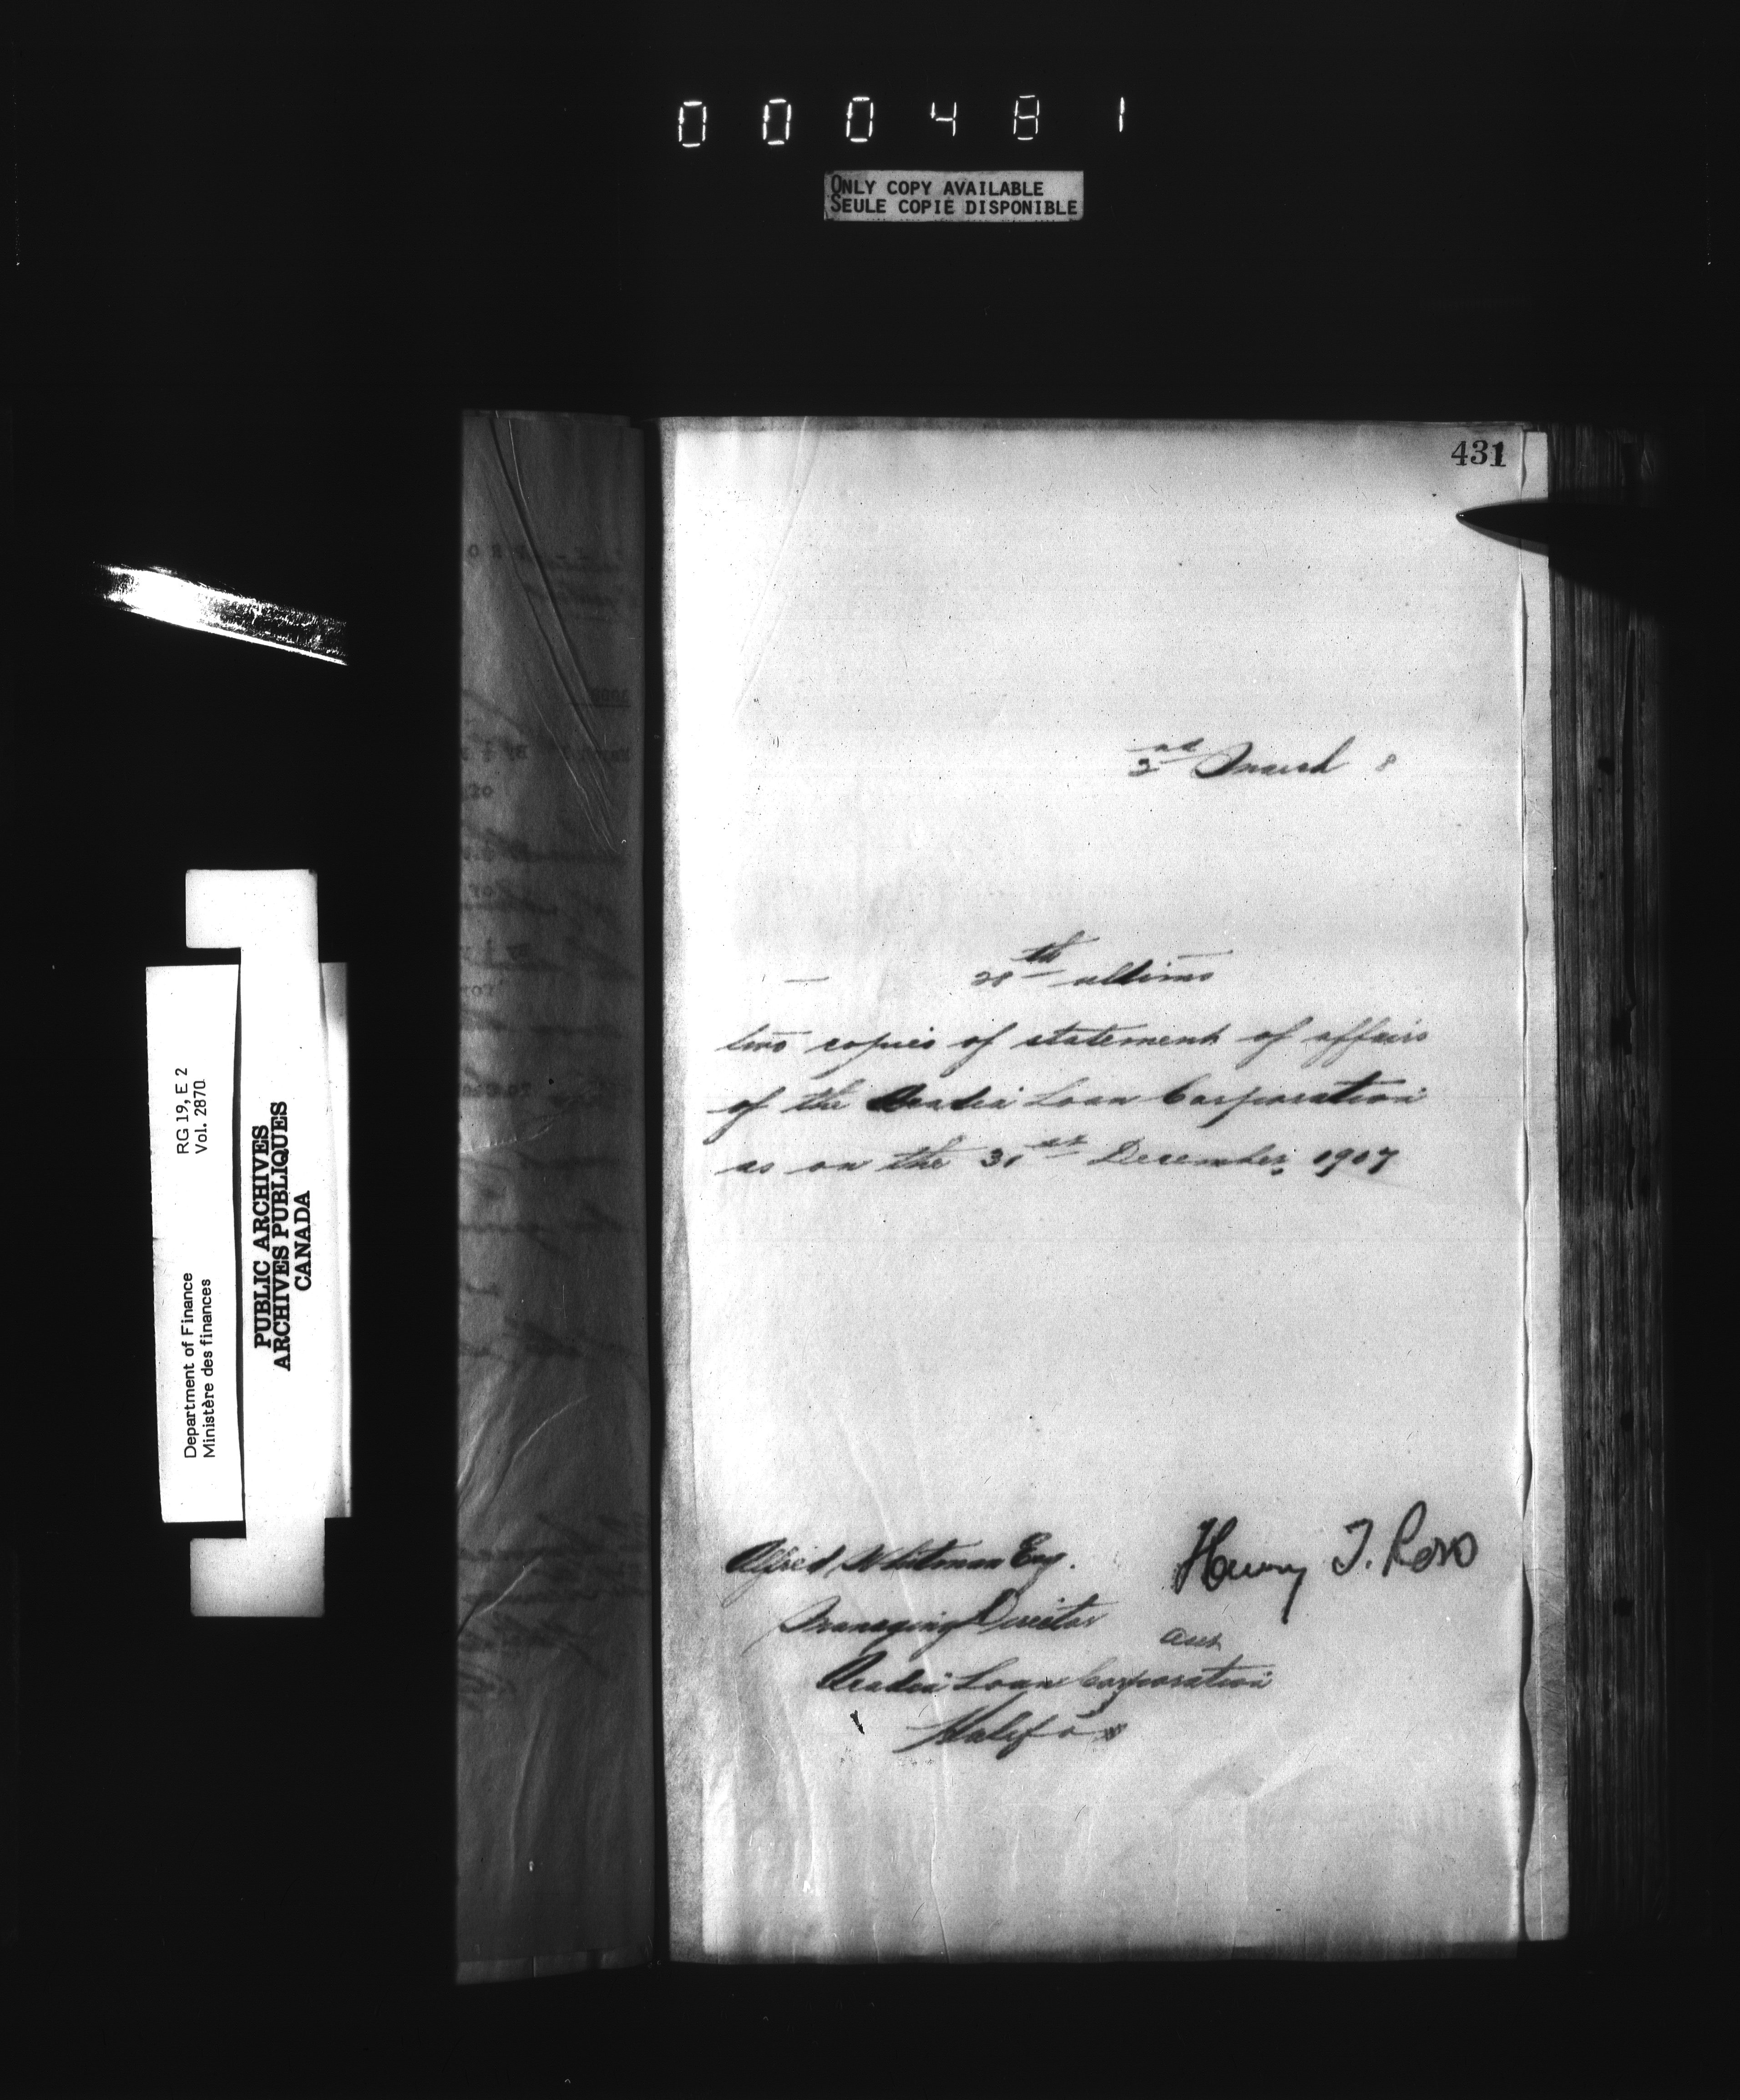 000481
ONLY COPY AVAILABLE
SEULE COPIE DISPONIBLE
431
2nd March 8
28th ultimo
two copies of statement of affairs
of the Acadia Loan Corporation
as on the 31st December, 1907
Henry T. Ross
Asst
Alfred Whitman Esq.
Managing Director
Acadia Loan Corporation
Halifax
RG 19, E 2
Vol. 2870
Department of Finance
Ministère des finances
PUBLIC ARCHIVES
ARCHIVES PUBLIQUES
CANADA